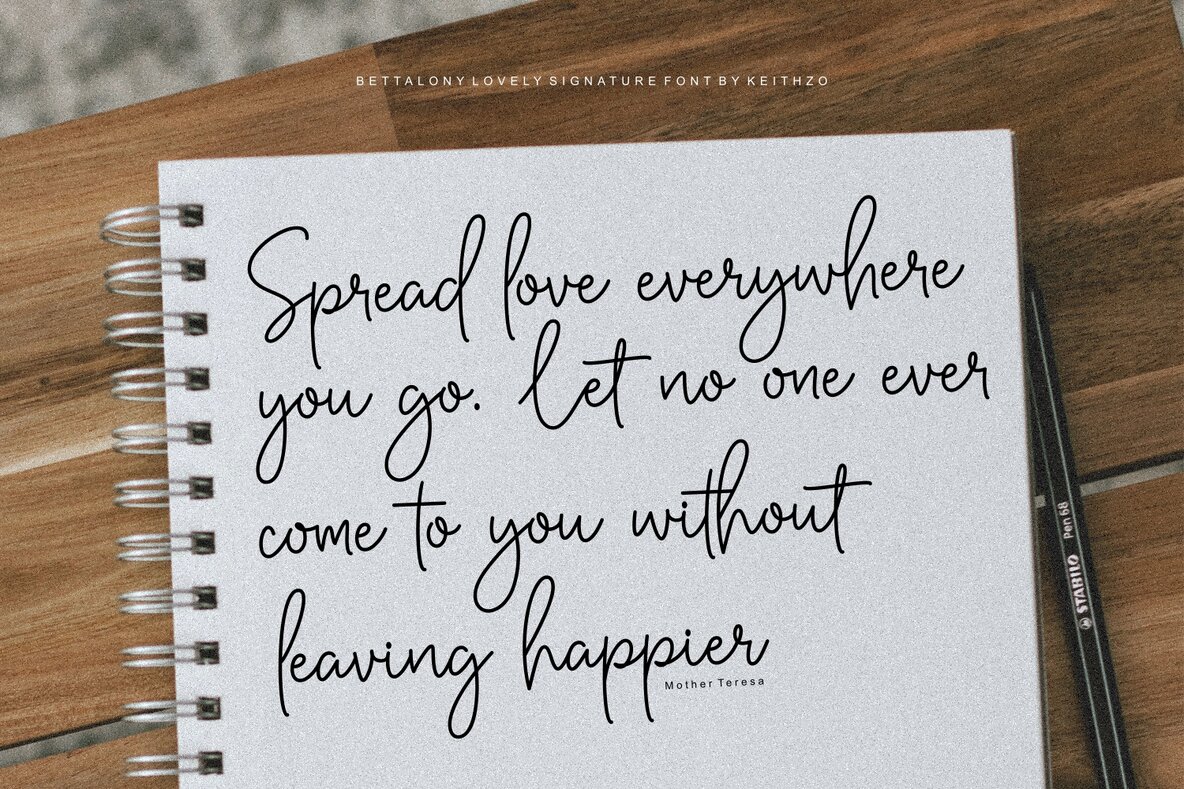 BETTALONY LOVELY SIGNATURE FONT BY KEITHZO
Spread love everywhere
you go. Let no one ever
come to you without
leaving happier
Mother Teresa
STABILO Pen 68